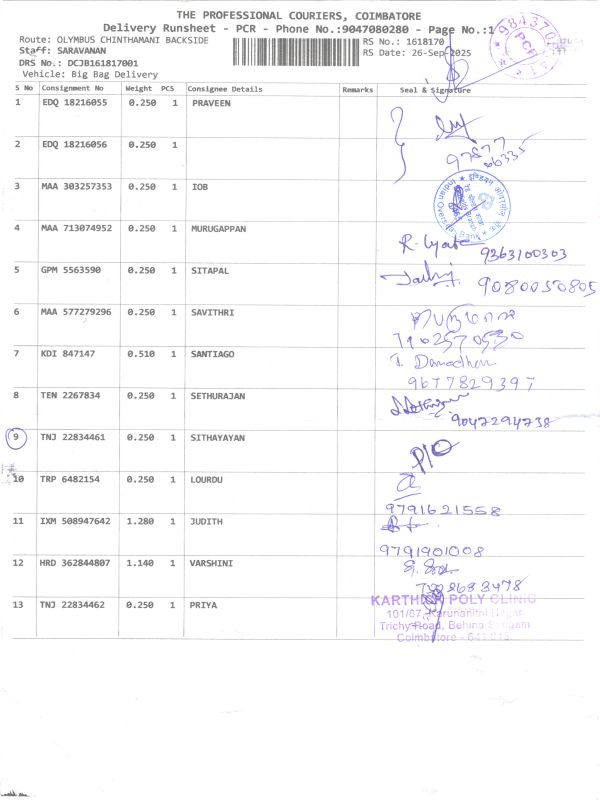 THE PROFESSIONAL COURIERS, COIMBATORE
Delivery Runsheet - PCR - Phone No.:9047080280 - Page No.:1
Route: OLYMBUS CHINTHAMANI BACKSIDE
RS No.: 1618170
Staff: SARAVANAN
RS Date: 26-Sep-2025
DRS No.: DCJB161817001
Vehicle: Big Bag Delivery
S No Consignment No Weight PCS Consignee Details Remarks Seal & Signature
1 EDQ 18216055 0.250 1 PRAVEEN
2 EDQ 18216056 0.250 1
3 MAA 303257353 0.250 1 IOB
4 MAA 713074952 0.250 1 MURUGAPPAN
9363100303
5 GPM 5563590 0.250 1 SITAPAL
9080050805
6 MAA 577279296 0.250 1 SAVITHRI
7 KDI 847147 0.510 1 SANTIAGO
9677829397
8 TEN 2267834 0.250 1 SETHURAJAN
9047294738
9 TNJ 22834461 0.250 1 SITHAYAYAN
P/O
10 TRP 6482154 0.250 1 LOURDU
9791621558
11 IXM 508947642 1.280 1 JUDITH
9791901008
12 HRD 362844807 1.140 1 VARSHINI
13 TNJ 22834462 0.250 1 PRIYA
POLY CLINIC
101/67, Karunanithi Nagar
Trichy Road, Behind
Coimbatore